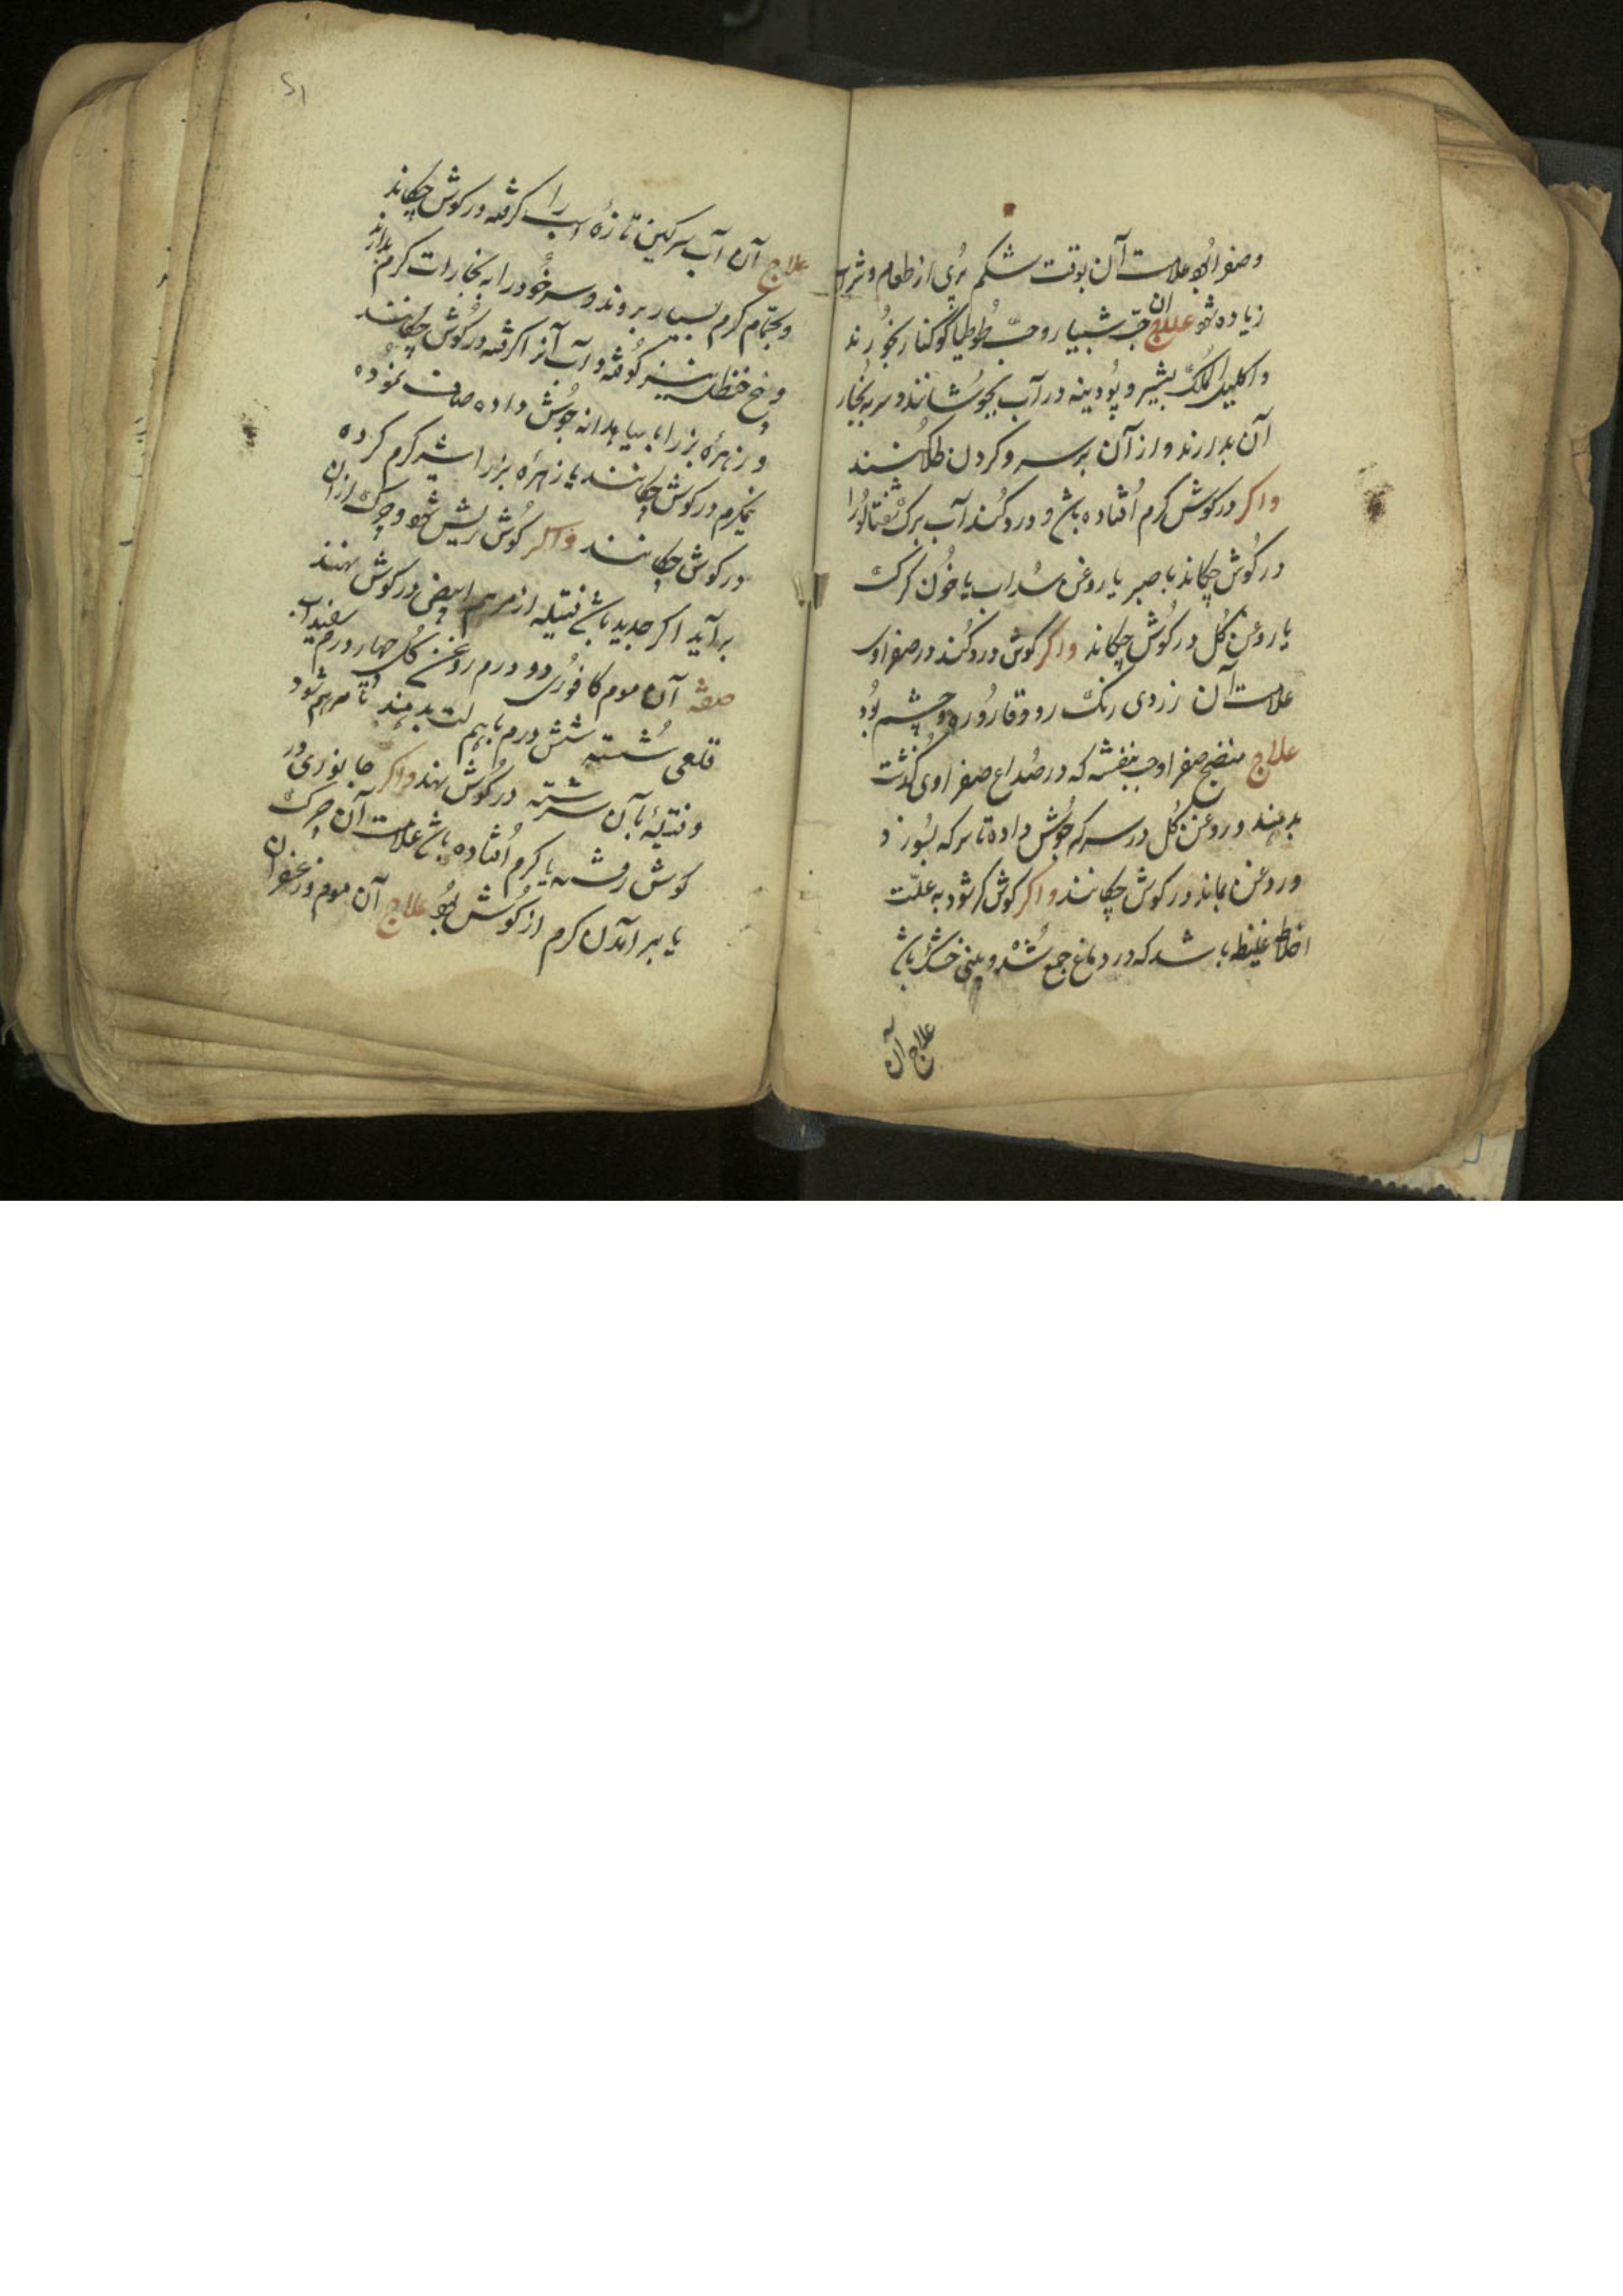 وصفرا بود علامت آن بوقت شکم پری از طعام و شراب
زیاده شود علاج ان حب شبیار و حب بخورند
واکلیل الملک بشیر و پودینه در آب بجوشانند و سر به بخار
آن بدارند و از آن بر سر و کردن طلا کنند
واکر در کوش کرم افتاده باشد و درد کند آب برک شفتالو را
در کوش چکاند با صبر یا روغن سداب یا خون کرک
یا روغن کل در کوش چکاند واکر کوش درد کند در صفراوی
علامت آن زردی رنک رو و قاروره و چشم بود
علاج منضج صفرا و حب بنفشه که در صداع صفراوی کذشت
بدهند و روغن کل در سرکه جوش داده تا سرکه بسوزد
و روغن بماند در کوش چکانند واکر کوش کر شود به علت
اخلاط غلیظ باشد که در دماغ جمع شده و بینی خشک باشد
علاج آن
علاج آن آب سرکین تازه اسب را کرفته در کوش چکاند
و بحمام کرم بسیار بروند و سر خود را به بخارات کرم بدارند
و بیخ حنظل نیز کوفته و آب آنرا کرفته در کوش چکانند
و زهره بز را با سیاهدانه جوش داده صاف نموده
نیکرم در کوش چکانند یا زهره بز را شیر کرم کرده
در کوش چکانند واکر کوش ریش شود و چرک از ان
برآید اکر جدید باشد فتیله از مرهم ابیض در کوش نهند
صفة آن موم کافوری دو درم روغن کل چهار درم سفیداب
قلعی شسته شش درم باهم لت بدهند تا مرهم شود
و فتیلهٔ بآن سرشته در کوش نهند واکر جانوری در
کوش رفته یا کرم افتاده باشد علامت آن چرک
یا برآمدن کرم از کوش بود علاج آن موم و زعفران